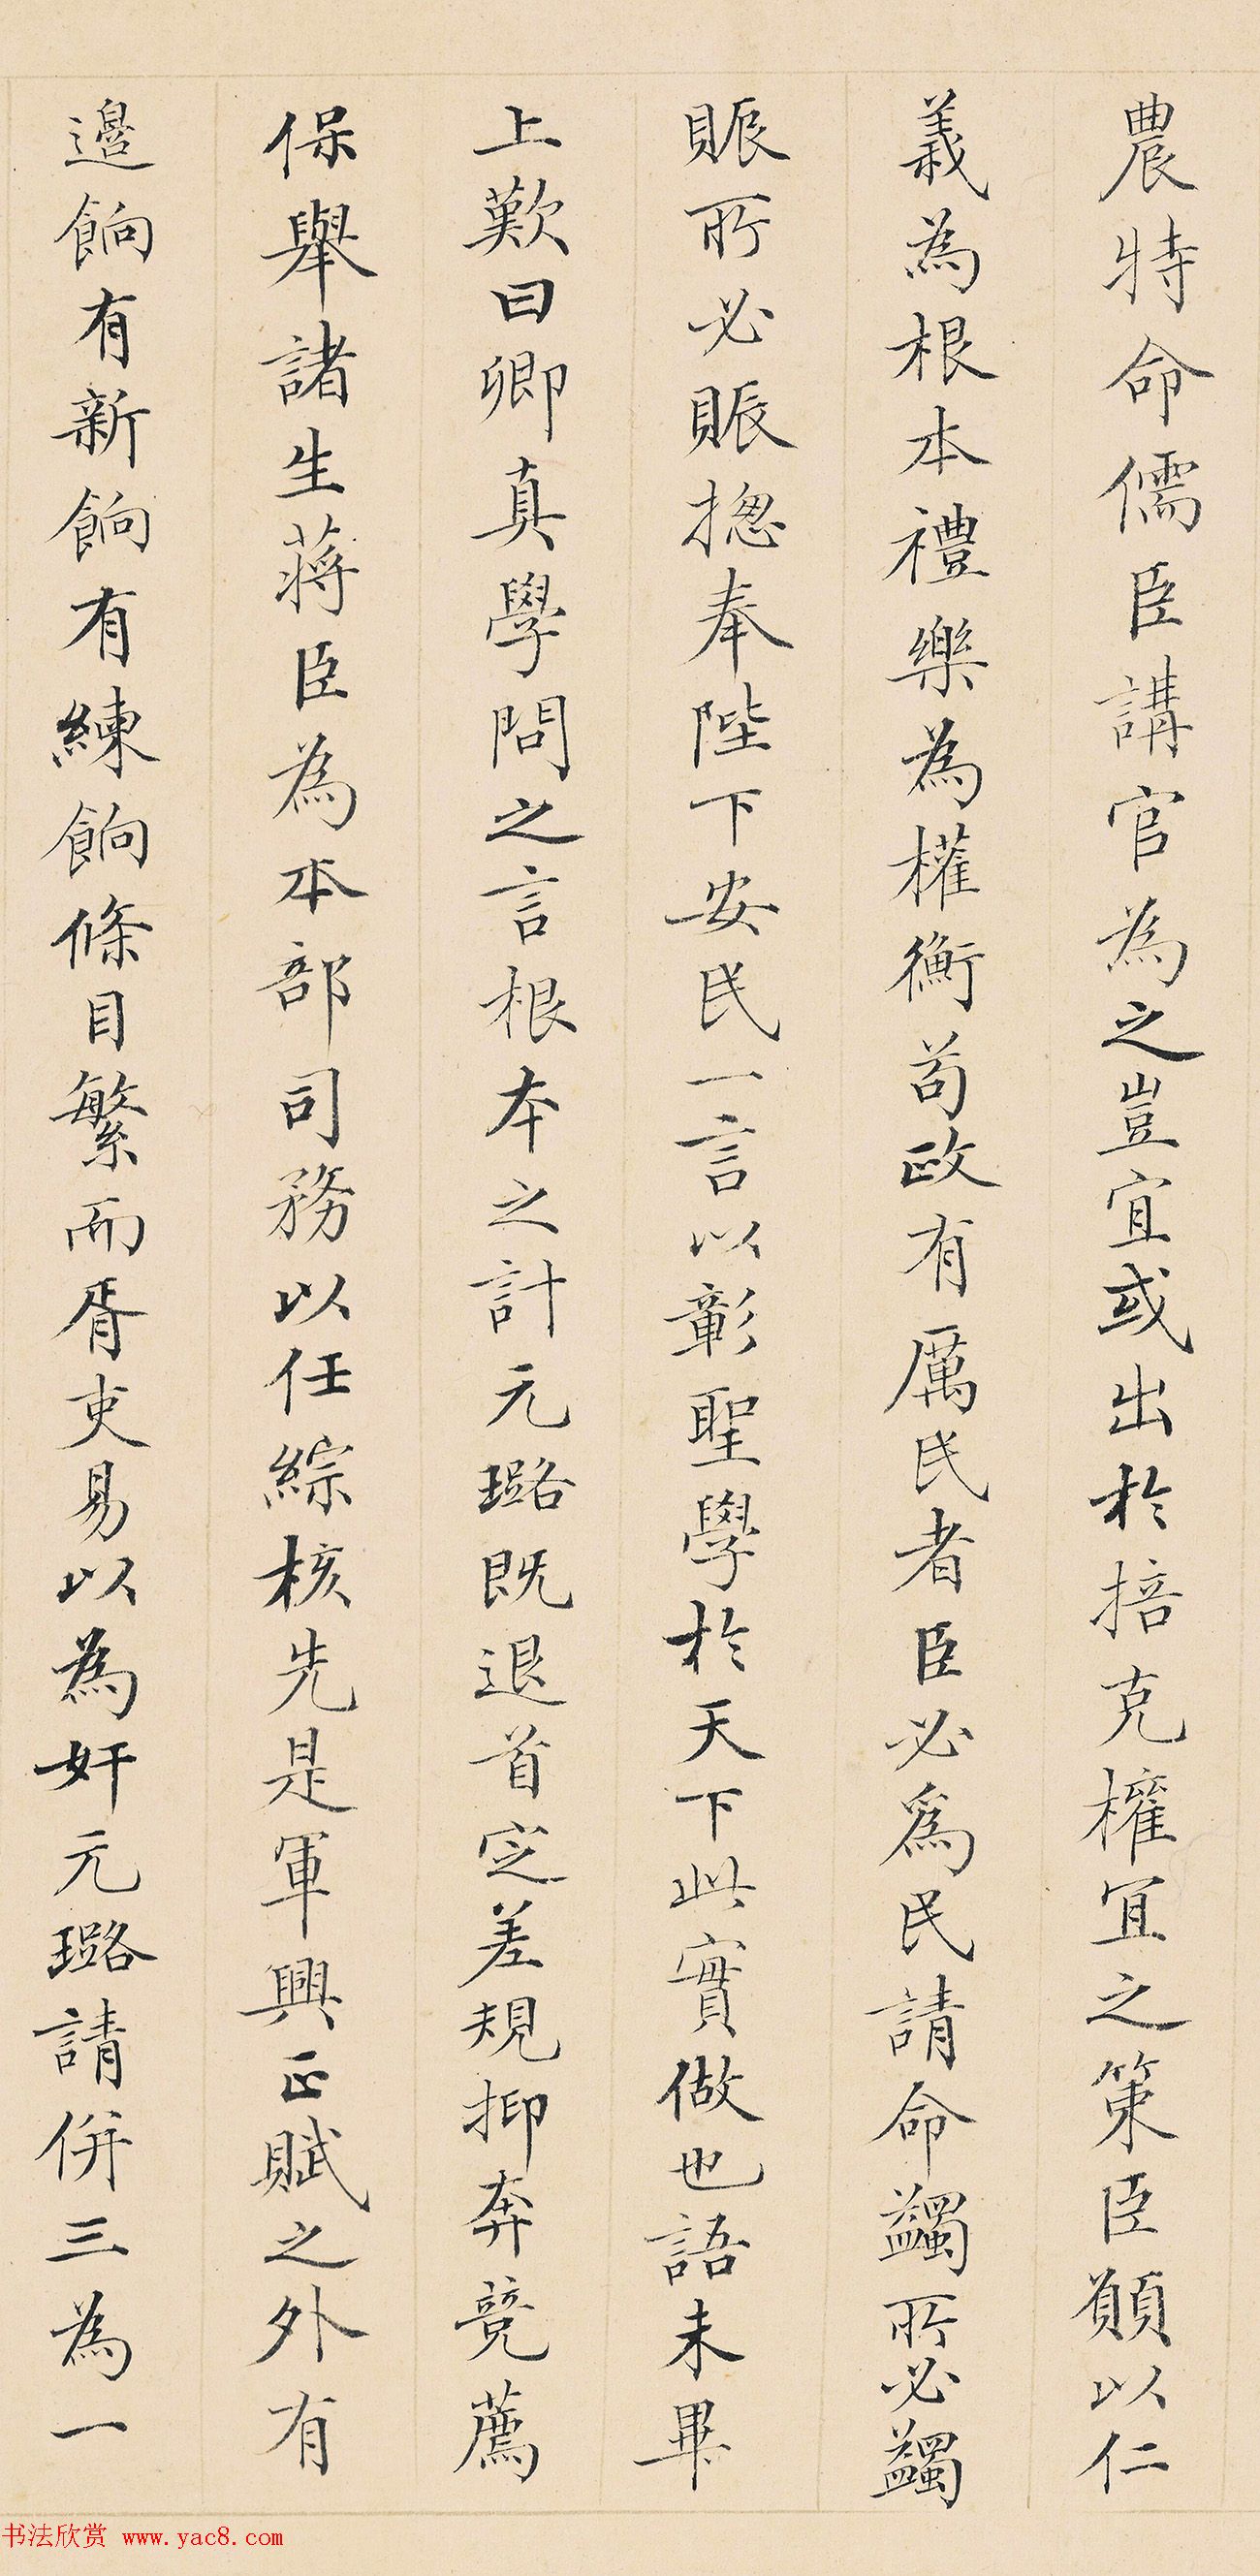 農特命儒臣講官為之豈宜或出於掊克權宜之策臣願以仁
義為根本禮樂為權衡苟政有厲民者臣必爲民請命蠲所必蠲
賑所必賑揔奉陛下安民一言以彰聖學於天下此實做也語未畢
上歎曰卿真學問之言根本之計元璐既退首定差規抑奔競薦
保舉諸生蔣臣為本部司務以任綜核先是軍興正賦之外有
邊餉有新餉有練餉條目繁而胥吏易以為奸元璐請併三為一
书法欣赏 www.yac8.com